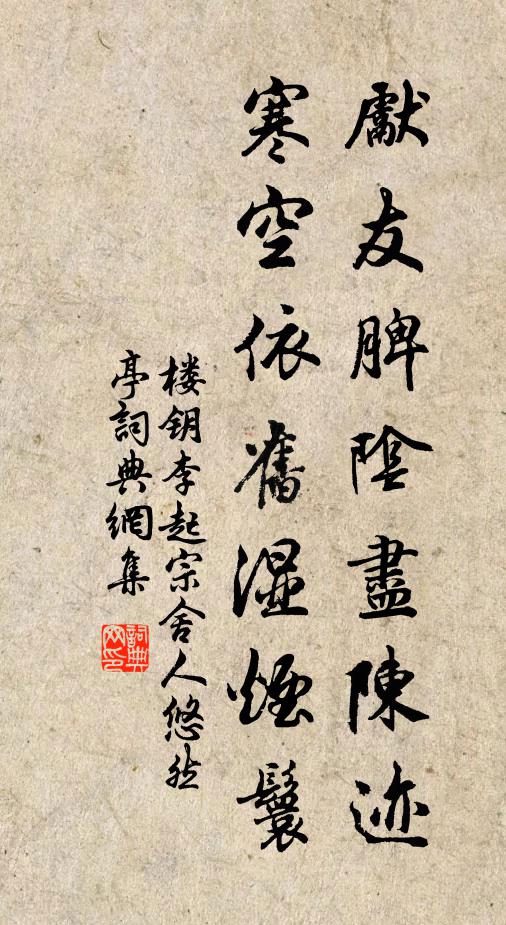 獻友脾陰盡陳迹
寒空依舊濕煙鬟
楼钥李起宗舍人悠然
亭詞典網集
詞典
网印